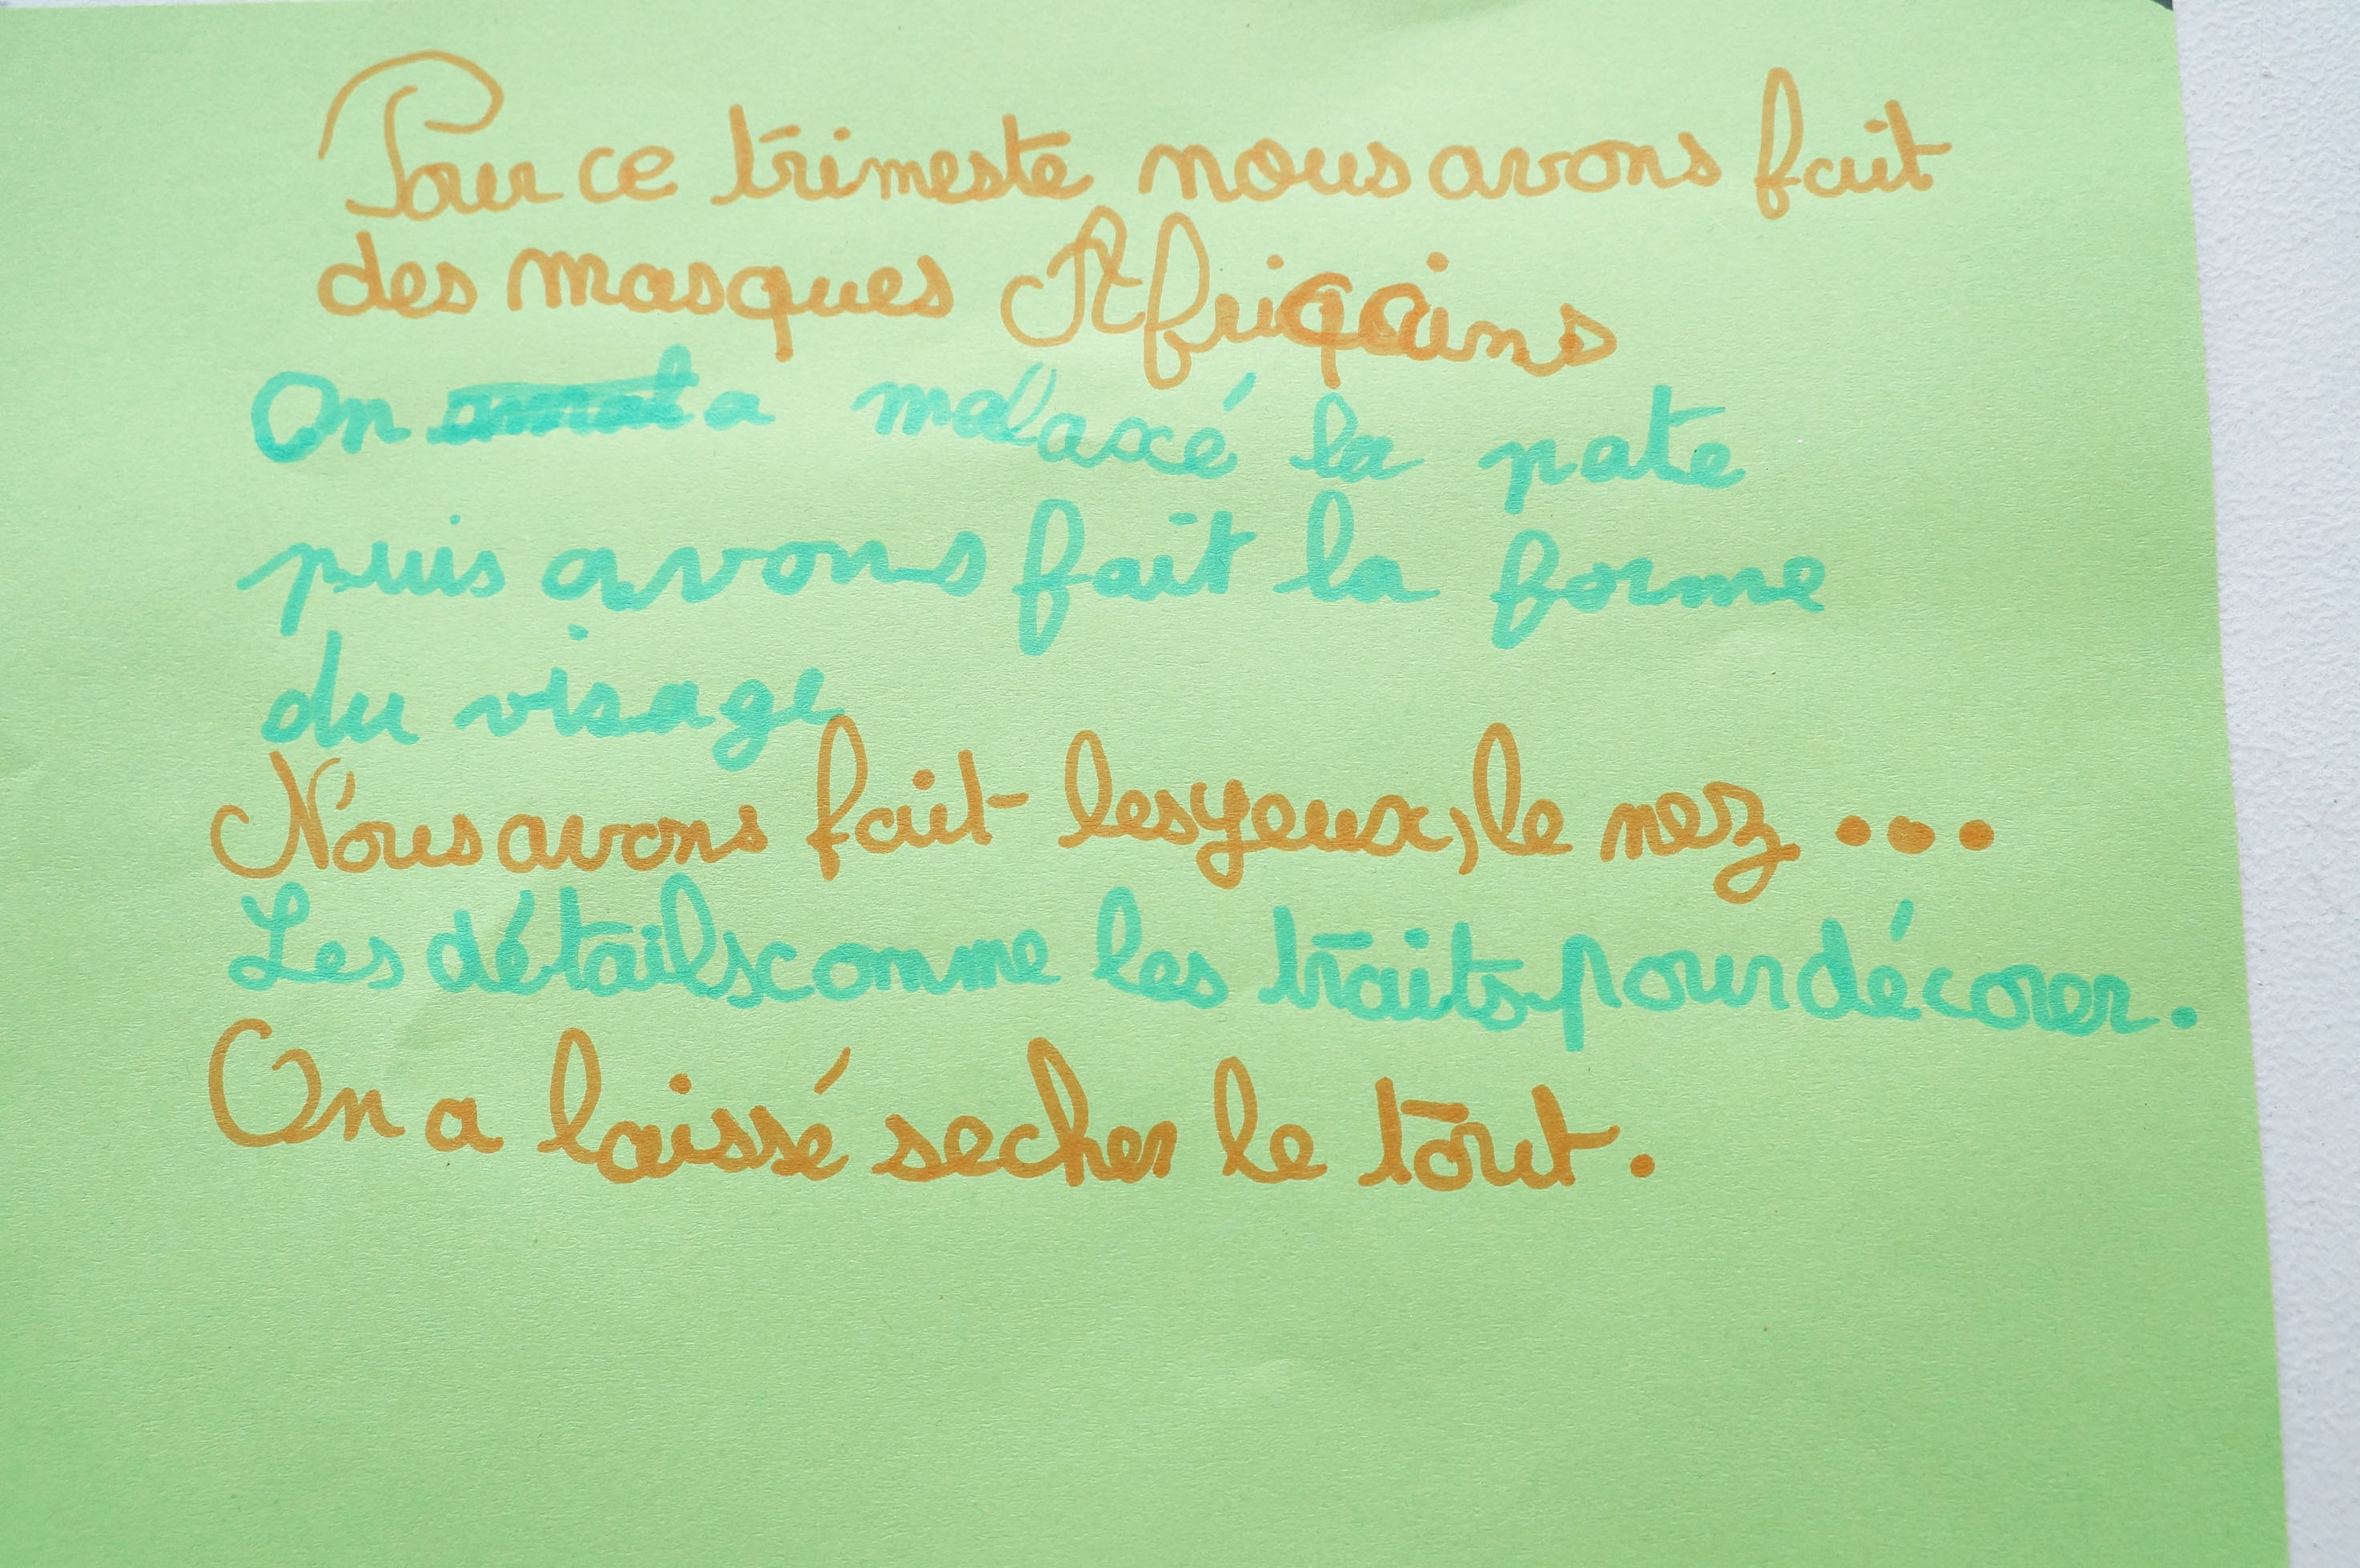 Pour ce trimeste nous avons fait
des masques Afriqains
On a malaxé la pate
puis avons fait la forme
du visage
Nous avons fait les yeux, le nez ...
Les détails comme les traits pour décorer.
On a laissé secher le tout.